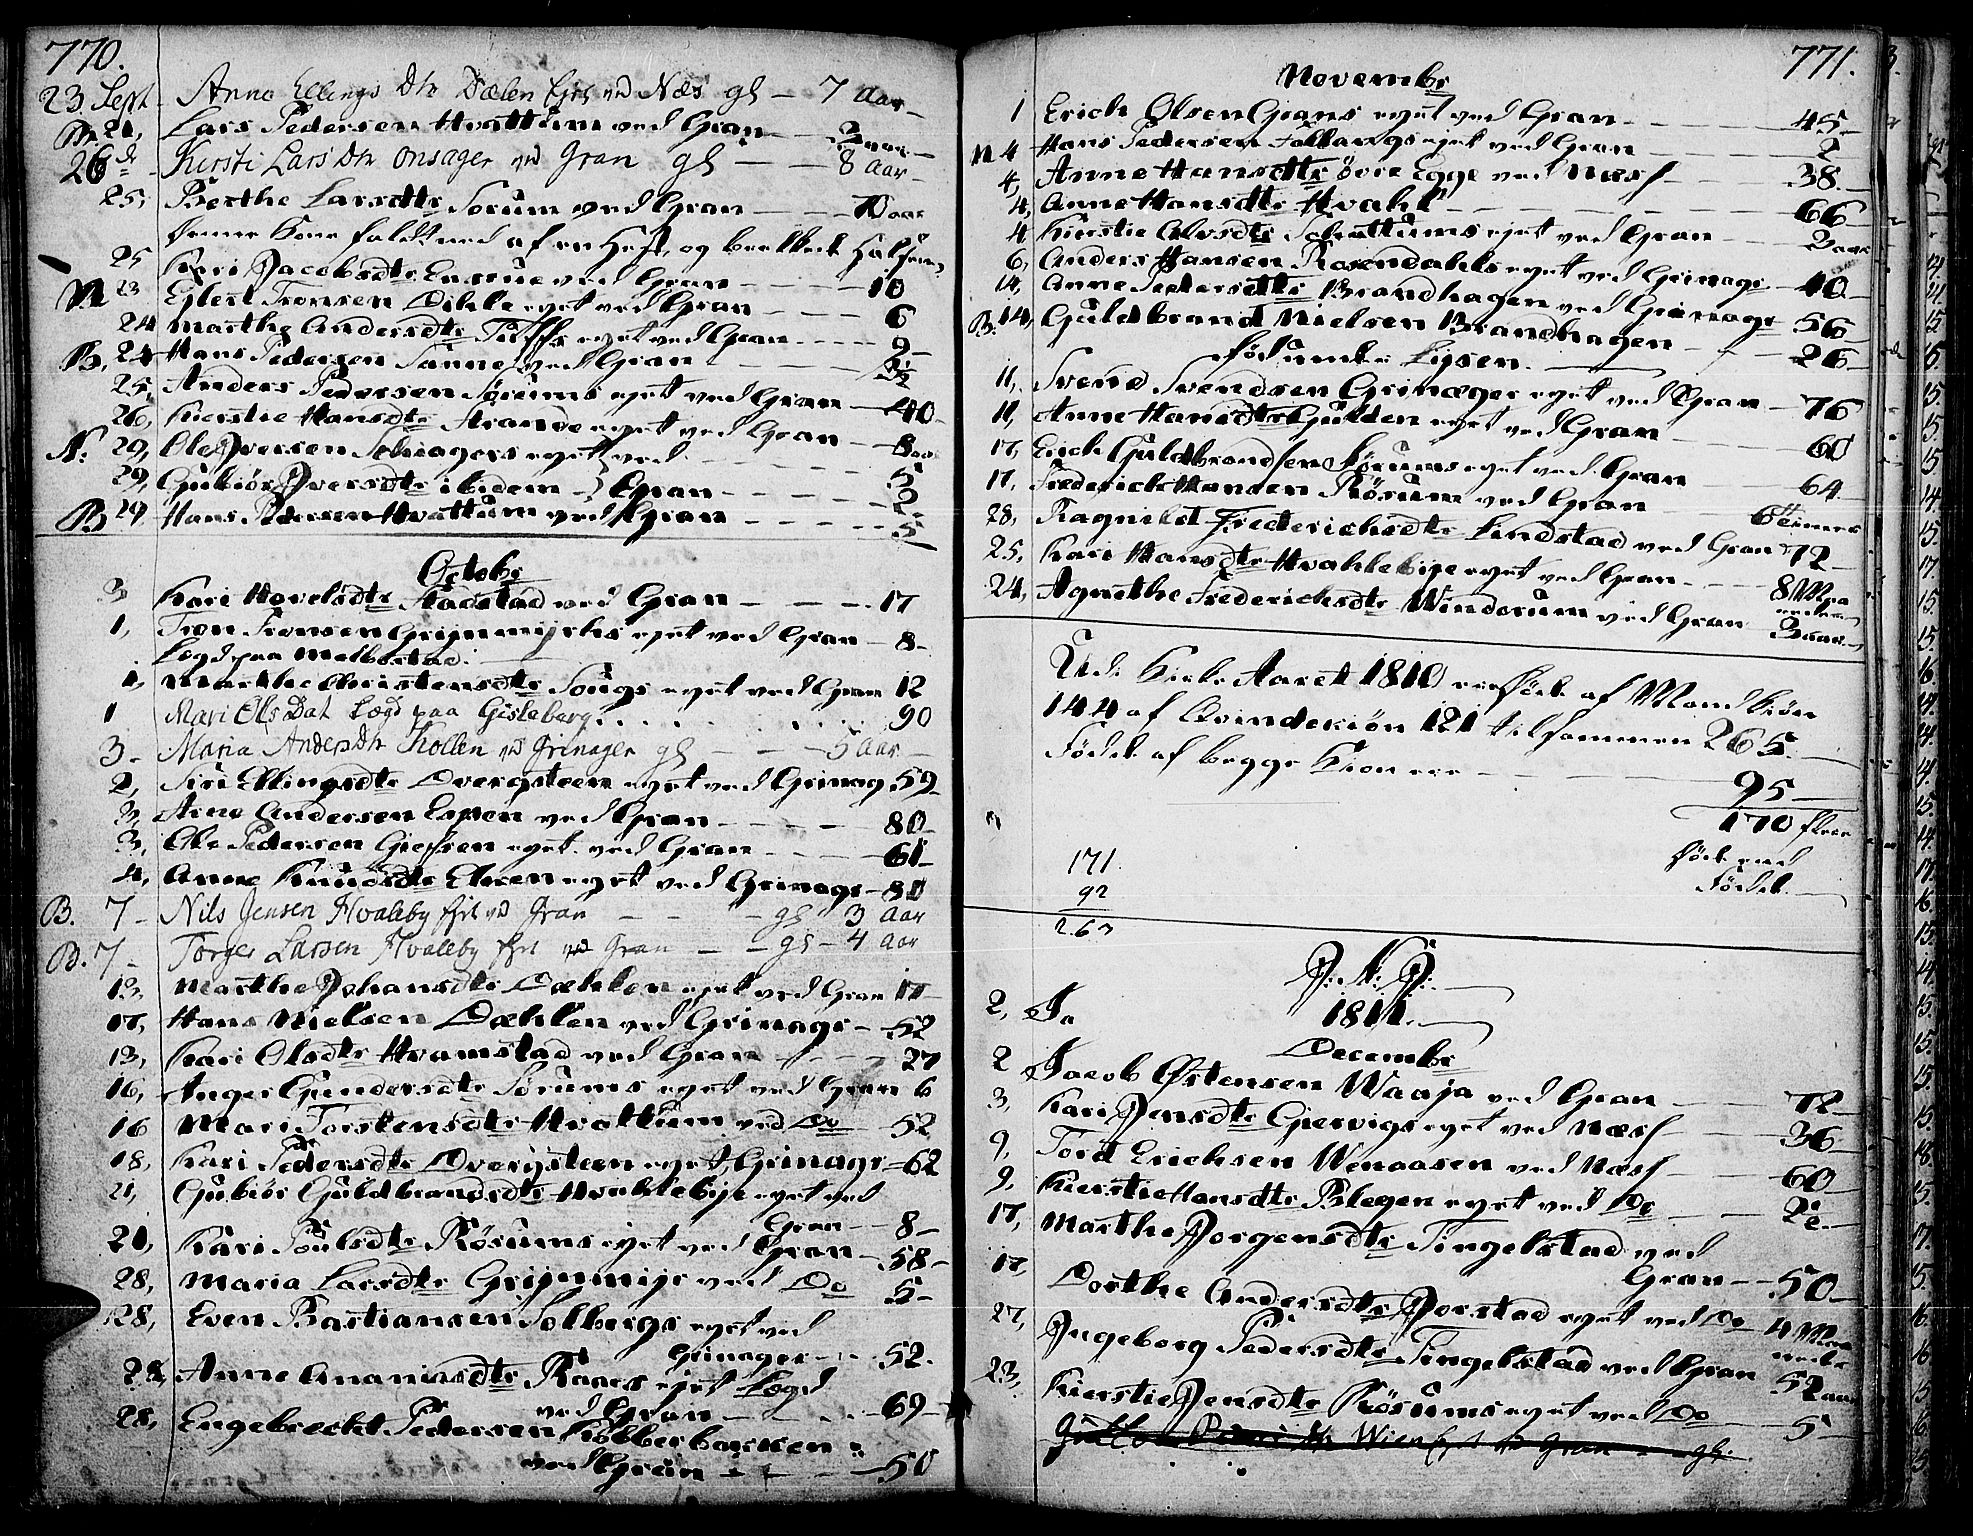 770.
23 Sept. Anne Ellings Dtr Dælen Ejet ved Næs gl — 7 Aar
B. 21, Lars Pedersen Hvattum ved Gran — 3 aar
26de Kiersti Lars Dtr Onsager ved Gran gl — 8 Aar
25, Berthe Larsdtr Sorum ved Gran — 70 aar
Denne Kone faldt ned af en Hest, og
25 Kari Jacobsdtr ved Gran — 10
N 23 Eglert Tronsen Dihle eyet ved Gran — 6
24 Marthe Andersdtr eyet ved Gran — 9
B. 24 Hans Pedersen Sanne ved Gran — 3½
25, Anders Pedersen Sørums eyet ved Gran — 40
26, Kierstie Hansdtr Strande eyet ved Gran — 8 aar
N: 29, Ole Iversen Schiagers eyet ved — 5
29, Gubiør Iversdtr ibidem Gran — 2
B 29 Hans Pedersen Hvattum ved Gran — 5
Octobr
3 Kari Hovelsdtr Stadstad ved Gran — 17
1, Tron Tronsen Grijnmyrhs eyet ved Gran — 8
Lægd paa Melbostad.
1, Marthe Christensdtr Sougs eyet ved Gran 12
1 Mari Ols Dat Lægd paa Gisleberg 90
3 Maria Anders Dtr Kollen ved Grinager gl — 5 Aar
2, Siri Ellingsdtr Dvergsteen eyet ved Grinag 59
3, Arne Andersen Espen ved Gran — 80
3, Ole Pedersen Giefsen eyet ved Gran — 61
4, Anne Knudsdtr Elken eyet ved Grinagr — 80
B. 7 Nils Jensen Hvaleby Ejet ved Gran — gl 3 Aar
B. 7 Torger Larsen Hvaleby Ejet ved Gran — gl — 4 Aar
13, Marthe Johansdtr Dæhlen eyet ved Gran 10
17, Hans Nielsen Dæhlen ved Grinagr — 52
13, Kari Olsdtr Hvamstad ved Gran — 27
16, Anger Gundersdtr Sørums eyet ved Gran 6
16 Mari Torstensdtr Hvattum ved Do 52
18, Kari Pedersdtr Dvergsteen eyet, Grinagr — 62
21, Gubiør Guldbrandsdtr Hvahlebije eyet ved
Gran — 8
21, Kari Poulsdtr Røsums eyet ved Gran — 58
28, Maria Larsdtr Grijnmijr ved Do 5
28, Even Bastiansen Solbergs eyet ved
Grinager — 52.
28, Anne Ananiasdtr Raaes eyet Lægd
ved Gran — 69
28, Engebrecht Pedersen Kobberbacken
ved Gran — 50
771.
Novembr
1 Erich Olsen Grans eyet ved Gran — 45
N 4 Hans Pedersen Follangs eyet ved Gran — 2
4, Anne Hansdtr Øvre Egge ved Næss — 38
4, Anne Hansdtr Hvahl — 66
4 Kierstie Olesdtr Schattums eyet ved Gran — 3 aar
6, Anders Hansen Rosendahls eyet ved Grinagr
14, Anne Pedersdtr Brandhagen ved Grinagr — 40
B. 14, Guldbrand Nielsen Brandhagen — 56
født under Lijsen. 26
11, Svend Svendsen Grinager eyet ved Gran — 76
11, Anne Hansdtr Gulden eyet ved Gran — 60
17, Erich Guldbrandsen Sørums eyet ved Gran — 64
17, Frederich Hansen Røsum ved Gran
28, Ragnild Frederichsdtr Lindstad ved Gran 72
25, Kari Hansdtr Hvahlebije eyet ved Gran — 8 Maa
24, Agnethe Frederichsdtr Winderum ved Gran 3 aar
Udi Kirke Aaret 1810 ere fødte af Mandkiøn
144 af Qvindekiøn 121 tilsammen 265
Dødet af begge Kiøn ere — 95
170 flere
171. Født end
92 Dødet
263
I. N. J.
2, Ja 1811.
Decembr
2 Jacob Østensen Waaja ved Gran — 72
3, Kari Jensdtr Gjervigs eyet ved Næss — 36
9, Tord Erichsen Wenaasen ved Næss — 60
9, Kierstie Hansdtr Blegen eyet ved Do — 22
17, Marthe Jorgensdtr Tingelstad ved
Gran — 50
17, Dorthe Andersdtr Jorstad eyet ved Do 4 Maa
27, Ingeborg Pedersdtr Tingelstad ved Gran 52 aar
23, Kierstie Jensdtr Røsums eyet ved Do — 5